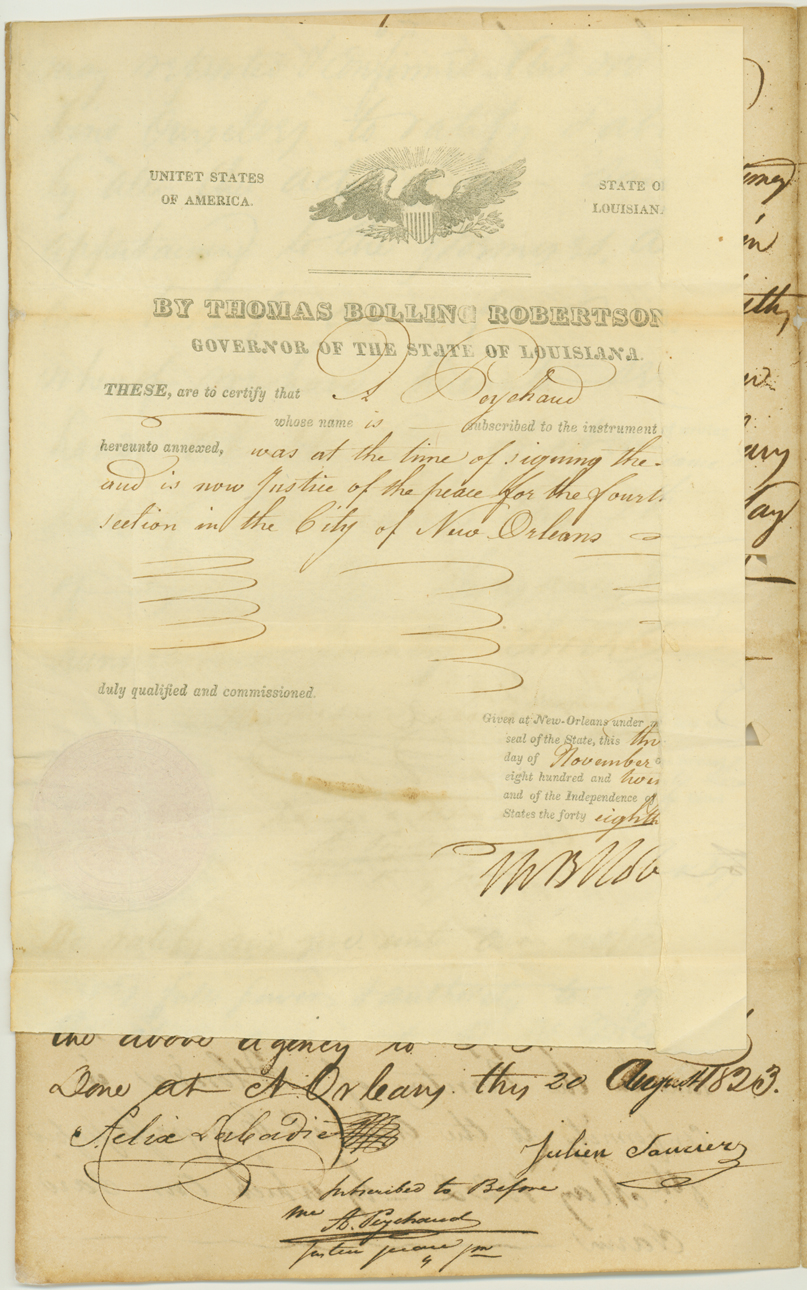 UNITET STATES
OF AMERICA.
STATE O
LOUISIAN
BY THOMAS BOLLING ROBERTSON
GOVERNOR OF THE STATE OF LOUISIANA.
THESE, are to certify that A Peychaud
whose name is subscribed to the instrument
hereunto annexed, was at the time of signing the
and is now Justice of the peace for the fourth
section in the City of New Orleans
duly qualified and commissioned.
Given at New-Orleans under
seal of the State, this
day of November
eight hundred and
and of the Independence
States the forty eighth
the above agency to
Done at N Orleans this 20 August 1823.
Felix Labadie
Julien Saucier
subscribed to Before
me
A. Peychaud